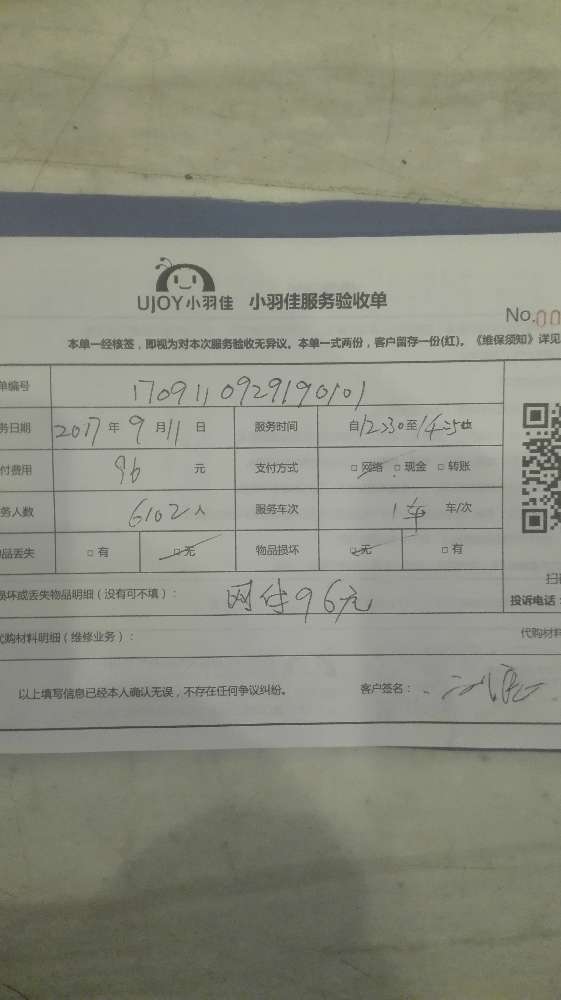 UJOY小羽佳 小羽佳服务验收单
No.00
本单一经核签，即视为对本次服务验收无异议。本单一式两份，客户留存一份(红)。《维保须知》详见
单编号 170911092919 0101
务日期 2017年9月11日 服务时间 自12:30至14
付费用 96元 支付方式 □网络 □现金 □转账
务人数 6102人 服务车次 1车 车/次
品丢失 □有 □无 物品损坏 □无 □有
损坏或丢失物品明细（没有可不填）： 网付96元
代购材料明细（维修业务）： 代购材料
扫
投诉电话：
以上填写信息已经本人确认无误，不存在任何争议纠纷。 客户签名：